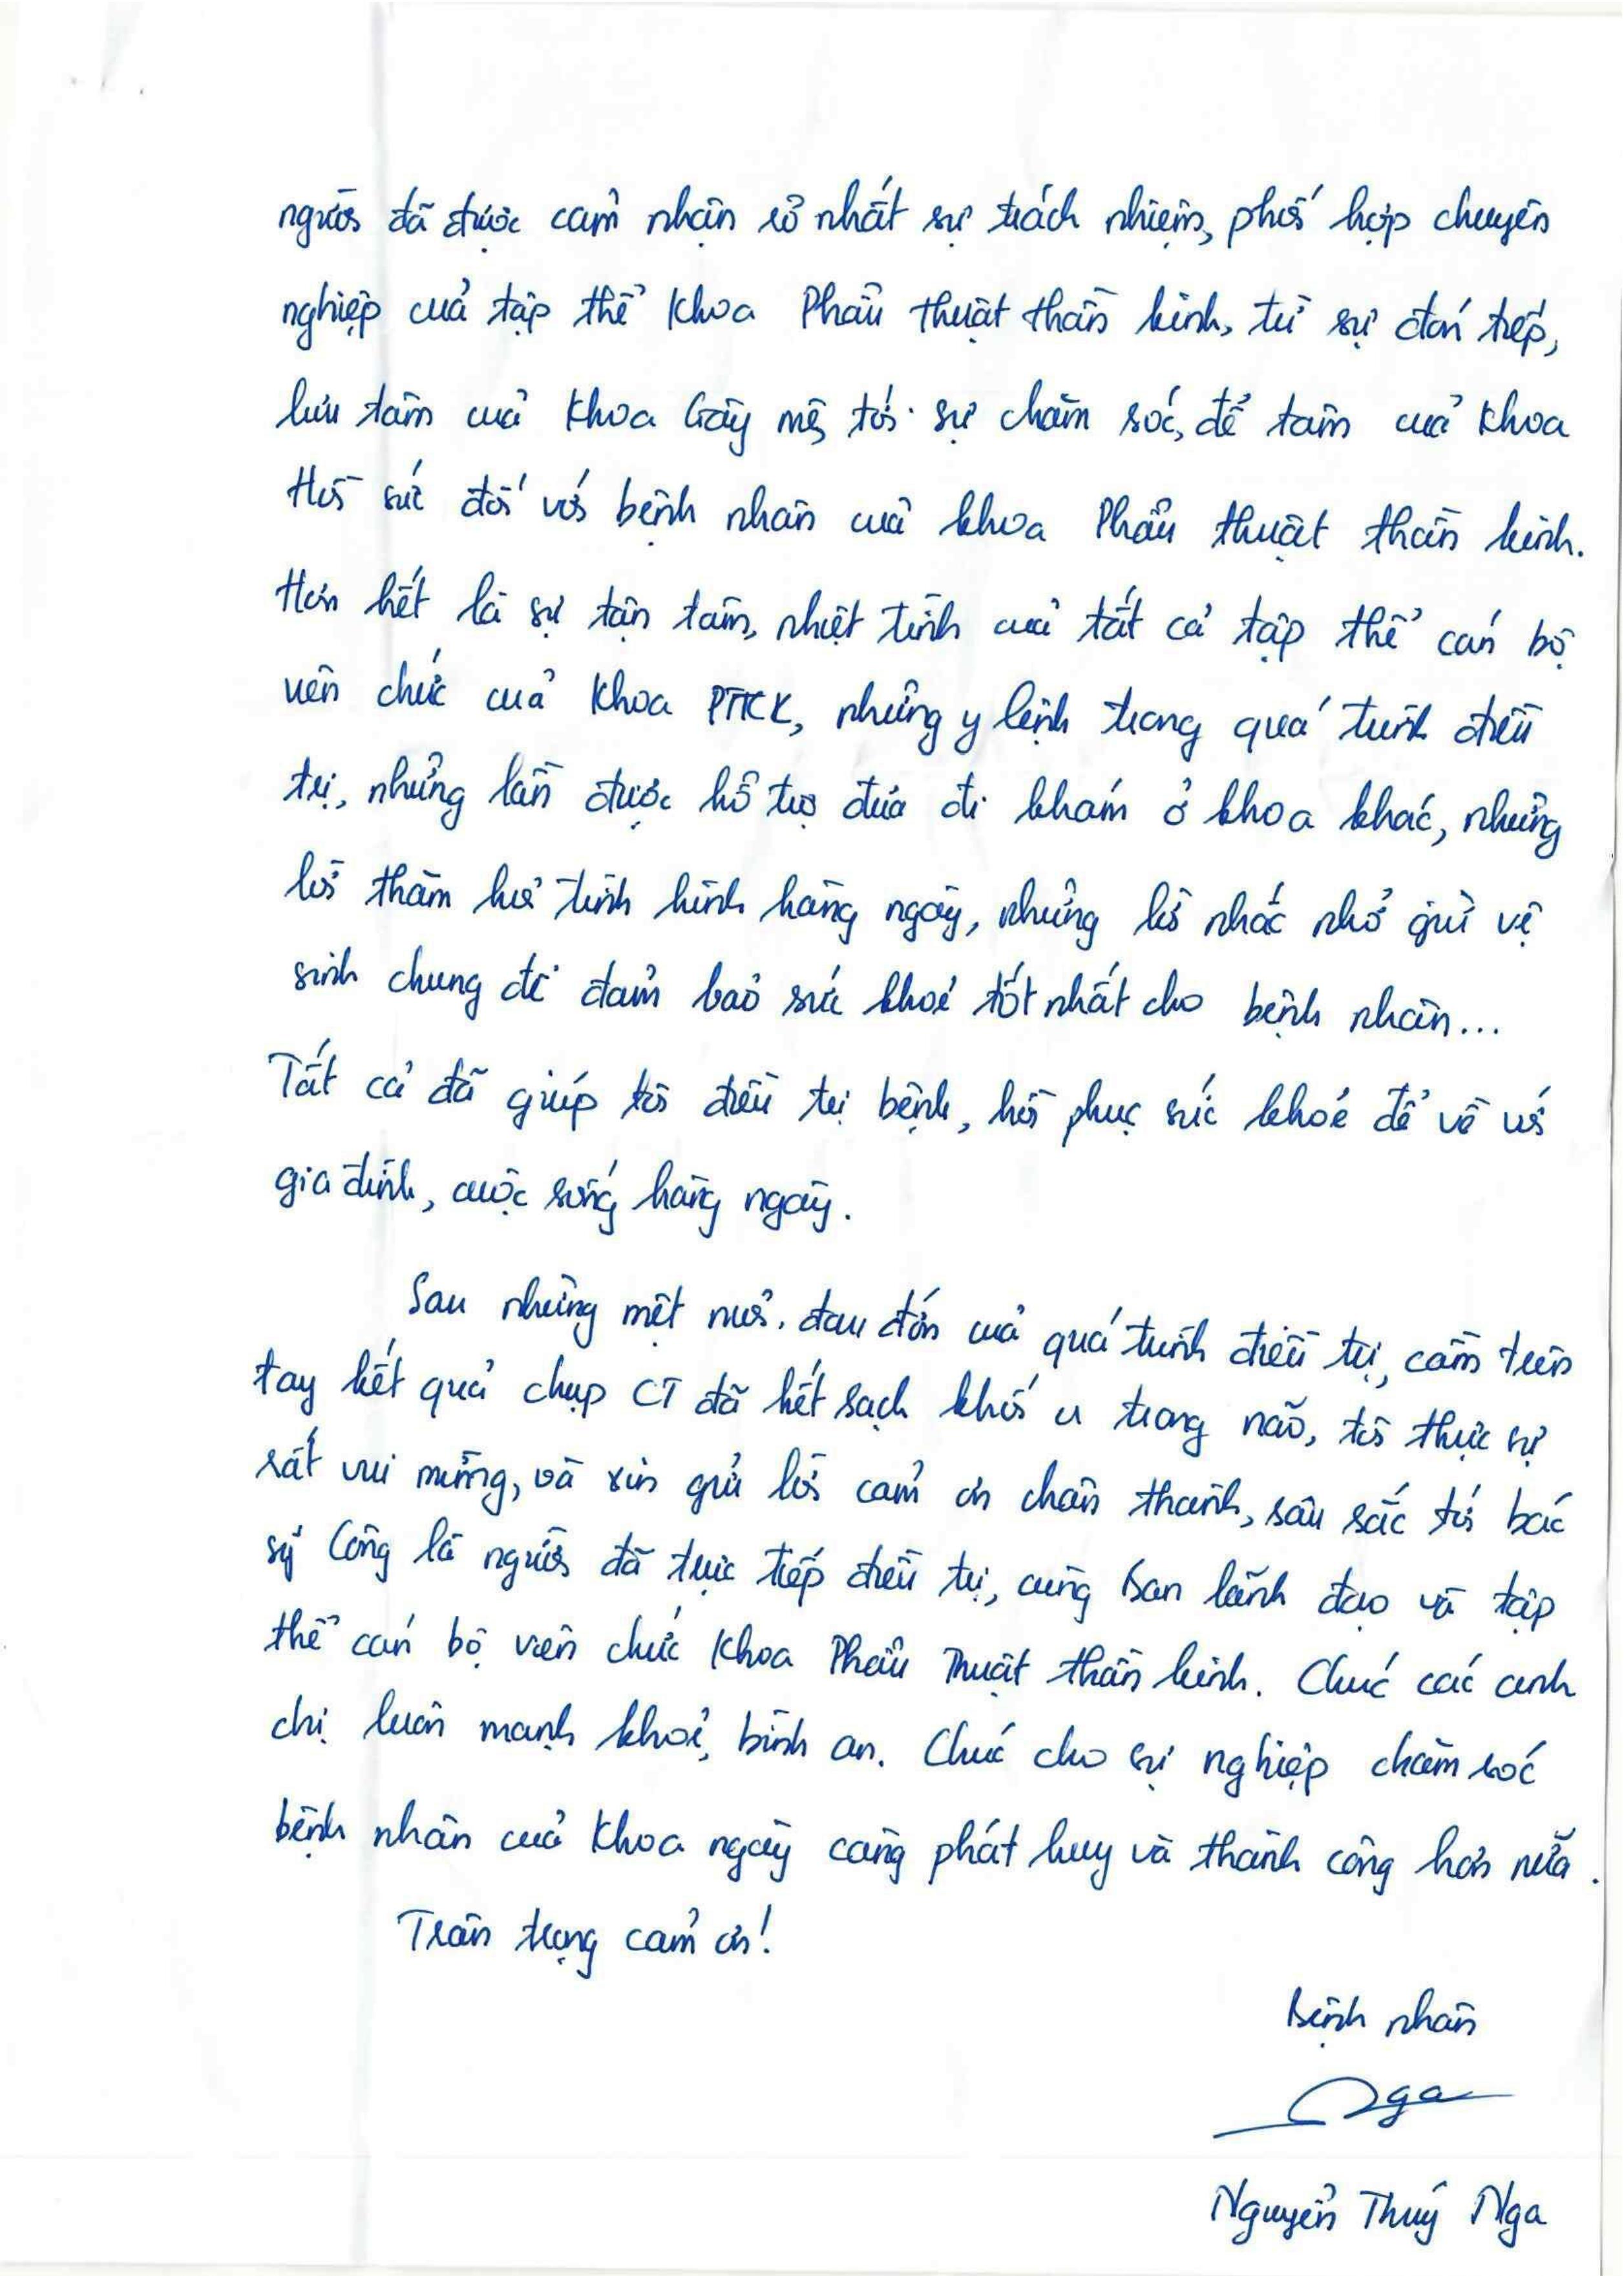 người đã được cảm nhận rõ nhất sự trách nhiệm, phối hợp chuyên
nghiệp của tập thể Khoa Phẫu thuật thần kinh, từ sự đón tiếp,
lưu tâm của Khoa Gây mê, tới sự chăm sóc, để tâm của Khoa
Hồi sức đối với bệnh nhân của khoa Phẫu thuật thần kinh.
Hơn hết là sự tận tâm, nhiệt tình của tất cả tập thể cán bộ
viên chức của Khoa PTTK, những y lệnh trong quá trình điều
trị, những lần được hỗ trợ đưa đi khám ở khoa khác, những
lời thăm hỏi tình hình hàng ngày, những lời nhắc nhở giữ vệ
sinh chung để đảm bảo sức khoẻ tốt nhất cho bệnh nhân...
Tất cả đã giúp tôi điều trị bệnh, hồi phục sức khoẻ để về với
gia đình, cuộc sống hàng ngày.
Sau những mệt mỏi, đau đớn của quá trình điều trị, cầm trên
tay kết quả chụp CT đã hết sạch khối u trong não, tôi thực sự
rất vui mừng, và xin gửi lời cảm ơn chân thành, sâu sắc tới bác
sỹ Công là người đã trực tiếp điều trị, cùng ban lãnh đạo và tập
thể cán bộ viên chức Khoa Phẫu Thuật thần kinh. Chúc các anh
chị luôn mạnh khoẻ, bình an. Chúc cho sự nghiệp chăm sóc
bệnh nhân của Khoa ngày càng phát huy và thành công hơn nữa.
Trân trọng cảm ơn!
Bệnh nhân
Nga
Nguyễn Thuý Nga